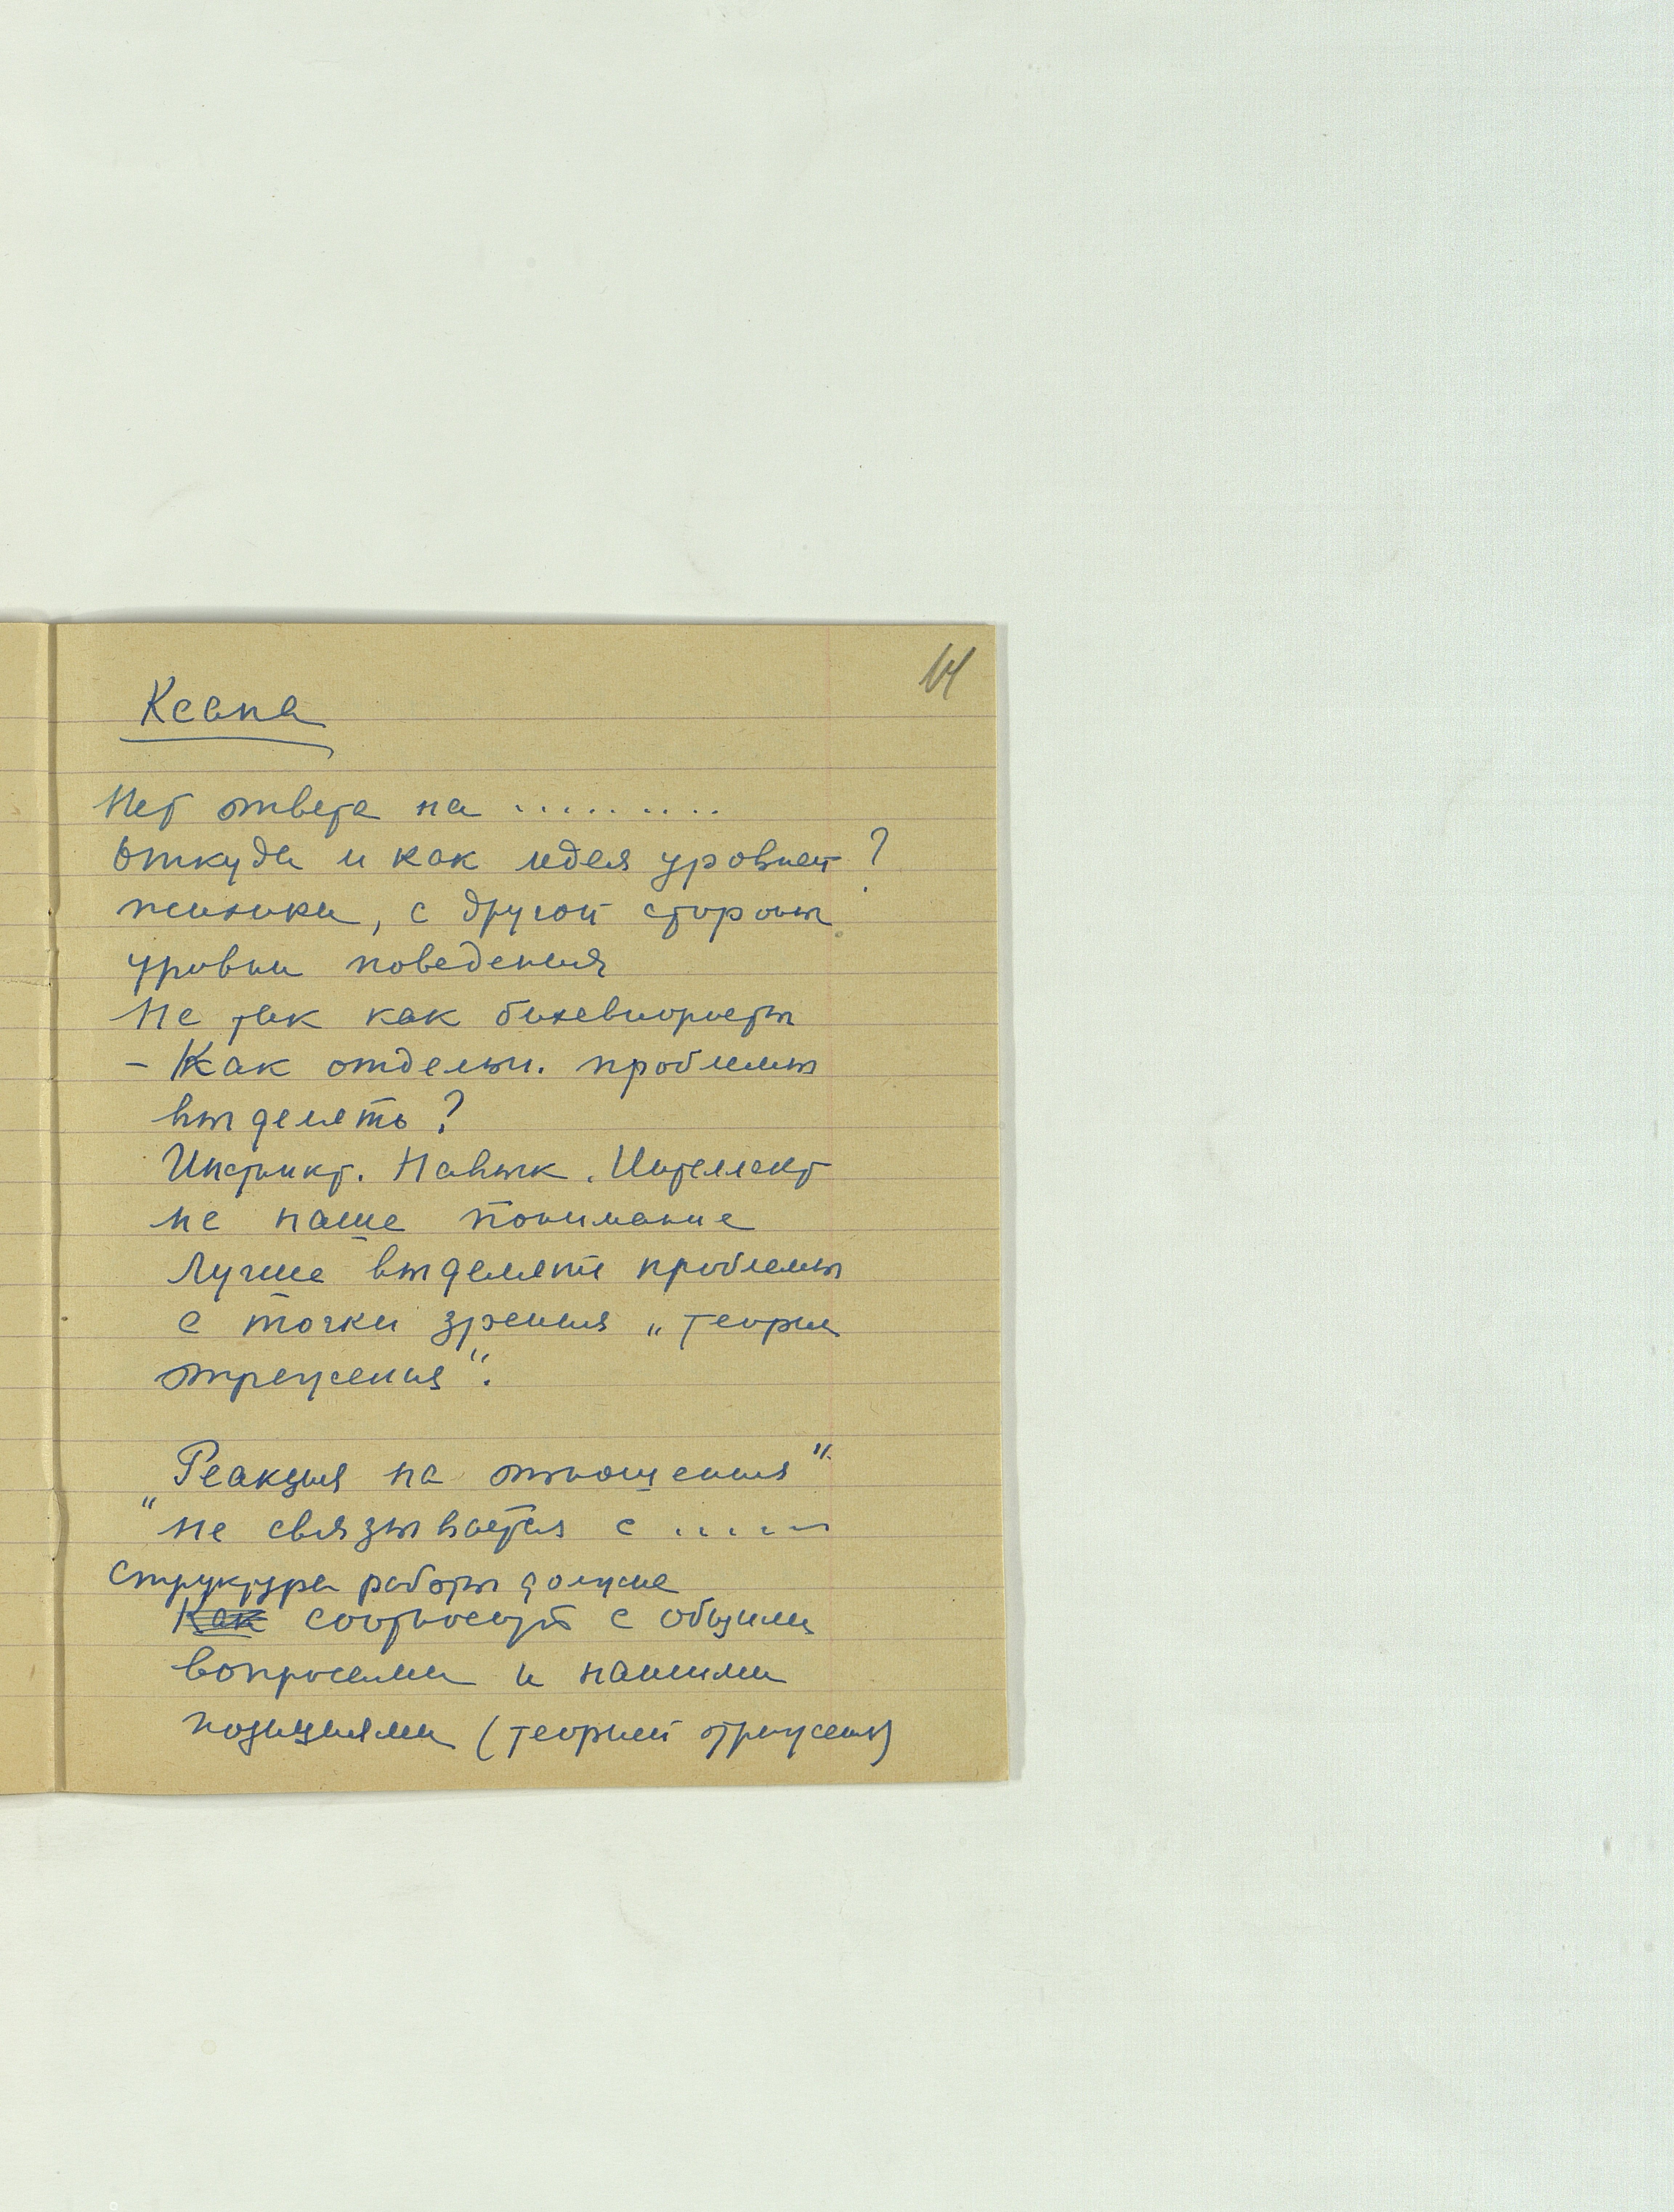 14
Ксана
Нет ответа на ..........
Откуда и как идея уровней ?
психики, с другой стороны
уровни поведения
Не так как бихевиористы
– Как отдельн. проблемы
выделять ?
Инстинкт. Навык. Интеллект
не наше понимание
Лучше выделять проблемы
с точки зрения „теории
отражения".
"Реакция на отношения"
не связывается с ......
Структура работы должна
Как соотносит с общими
вопросами и нашими
позициями (теорией отражения)